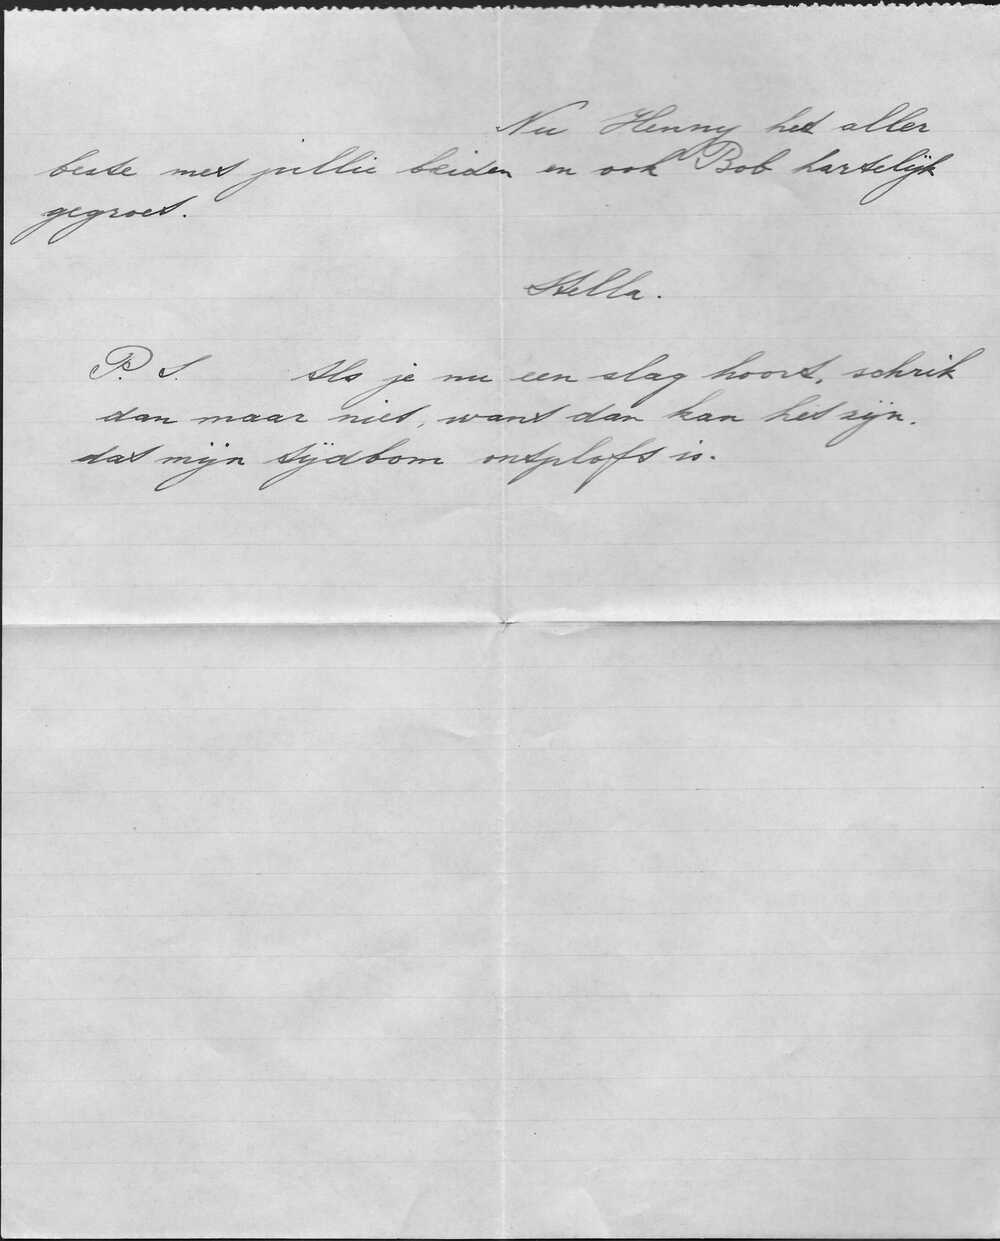 Nu Henny het aller
beste met jullie beiden en ook Bob hartelijk
gegroet.
Stella.
P.S. Als je nu een slag hoort, schrik
dan maar niet, want dan kan het zijn,
dat mijn tijdbom ontploft is.